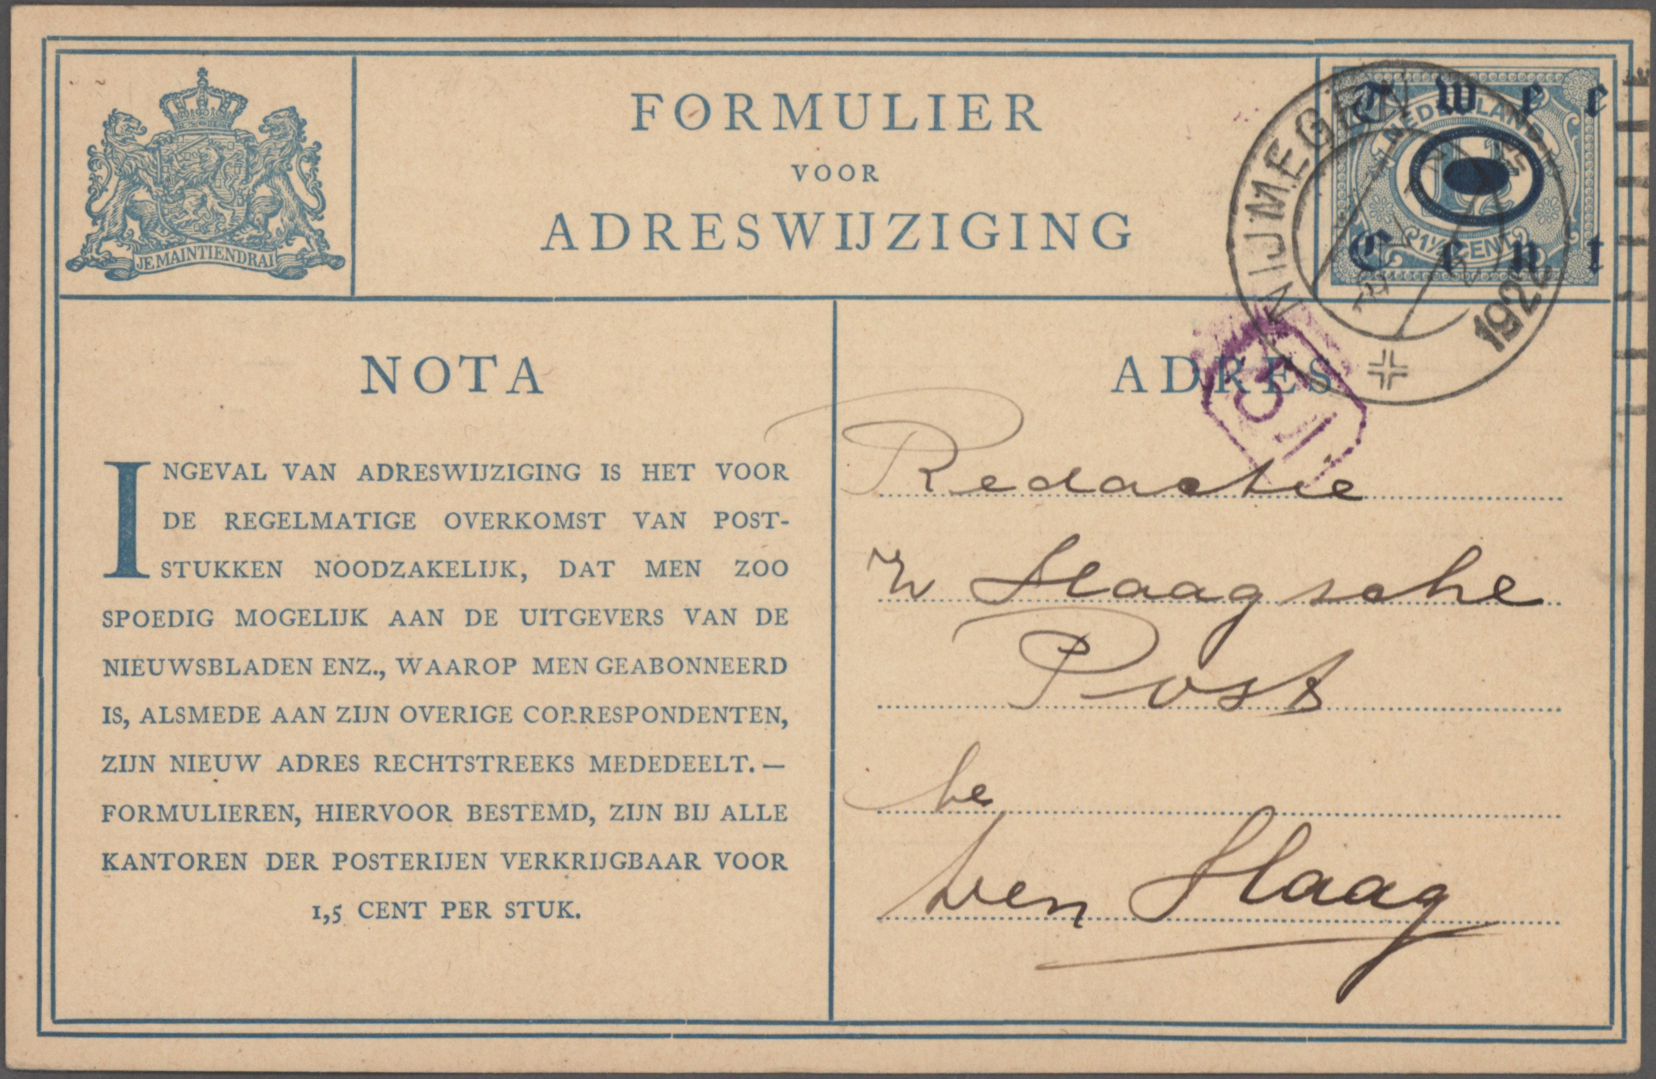 FORMULIER
VOOR
ADRESWIJZIGING
JE MAINTIENDRAI
Twee
NEDERLAND
1½ CENT
Cent
NIJMEGEN
NOTA
INGEVAL VAN ADRESWIJZIGING IS HET VOOR
DE REGELMATIGE OVERKOMST VAN POST-
STUKKEN NOODZAKELIJK, DAT MEN ZOO
SPOEDIG MOGELIJK AAN DE UITGEVERS VAN DE
NIEUWSBLADEN ENZ., WAAROP MEN GEABONNEERD
IS, ALSMEDE AAN ZIJN OVERIGE CORRESPONDENTEN,
ZIJN NIEUW ADRES RECHTSTREEKS MEDEDEELT. —
FORMULIEREN, HIERVOOR BESTEMD, ZIJN BIJ ALLE
KANTOREN DER POSTERIJEN VERKRIJGBAAR VOOR
1,5 CENT PER STUK.
ADRES
Redactie
Haagsche
Post
te
den Haag